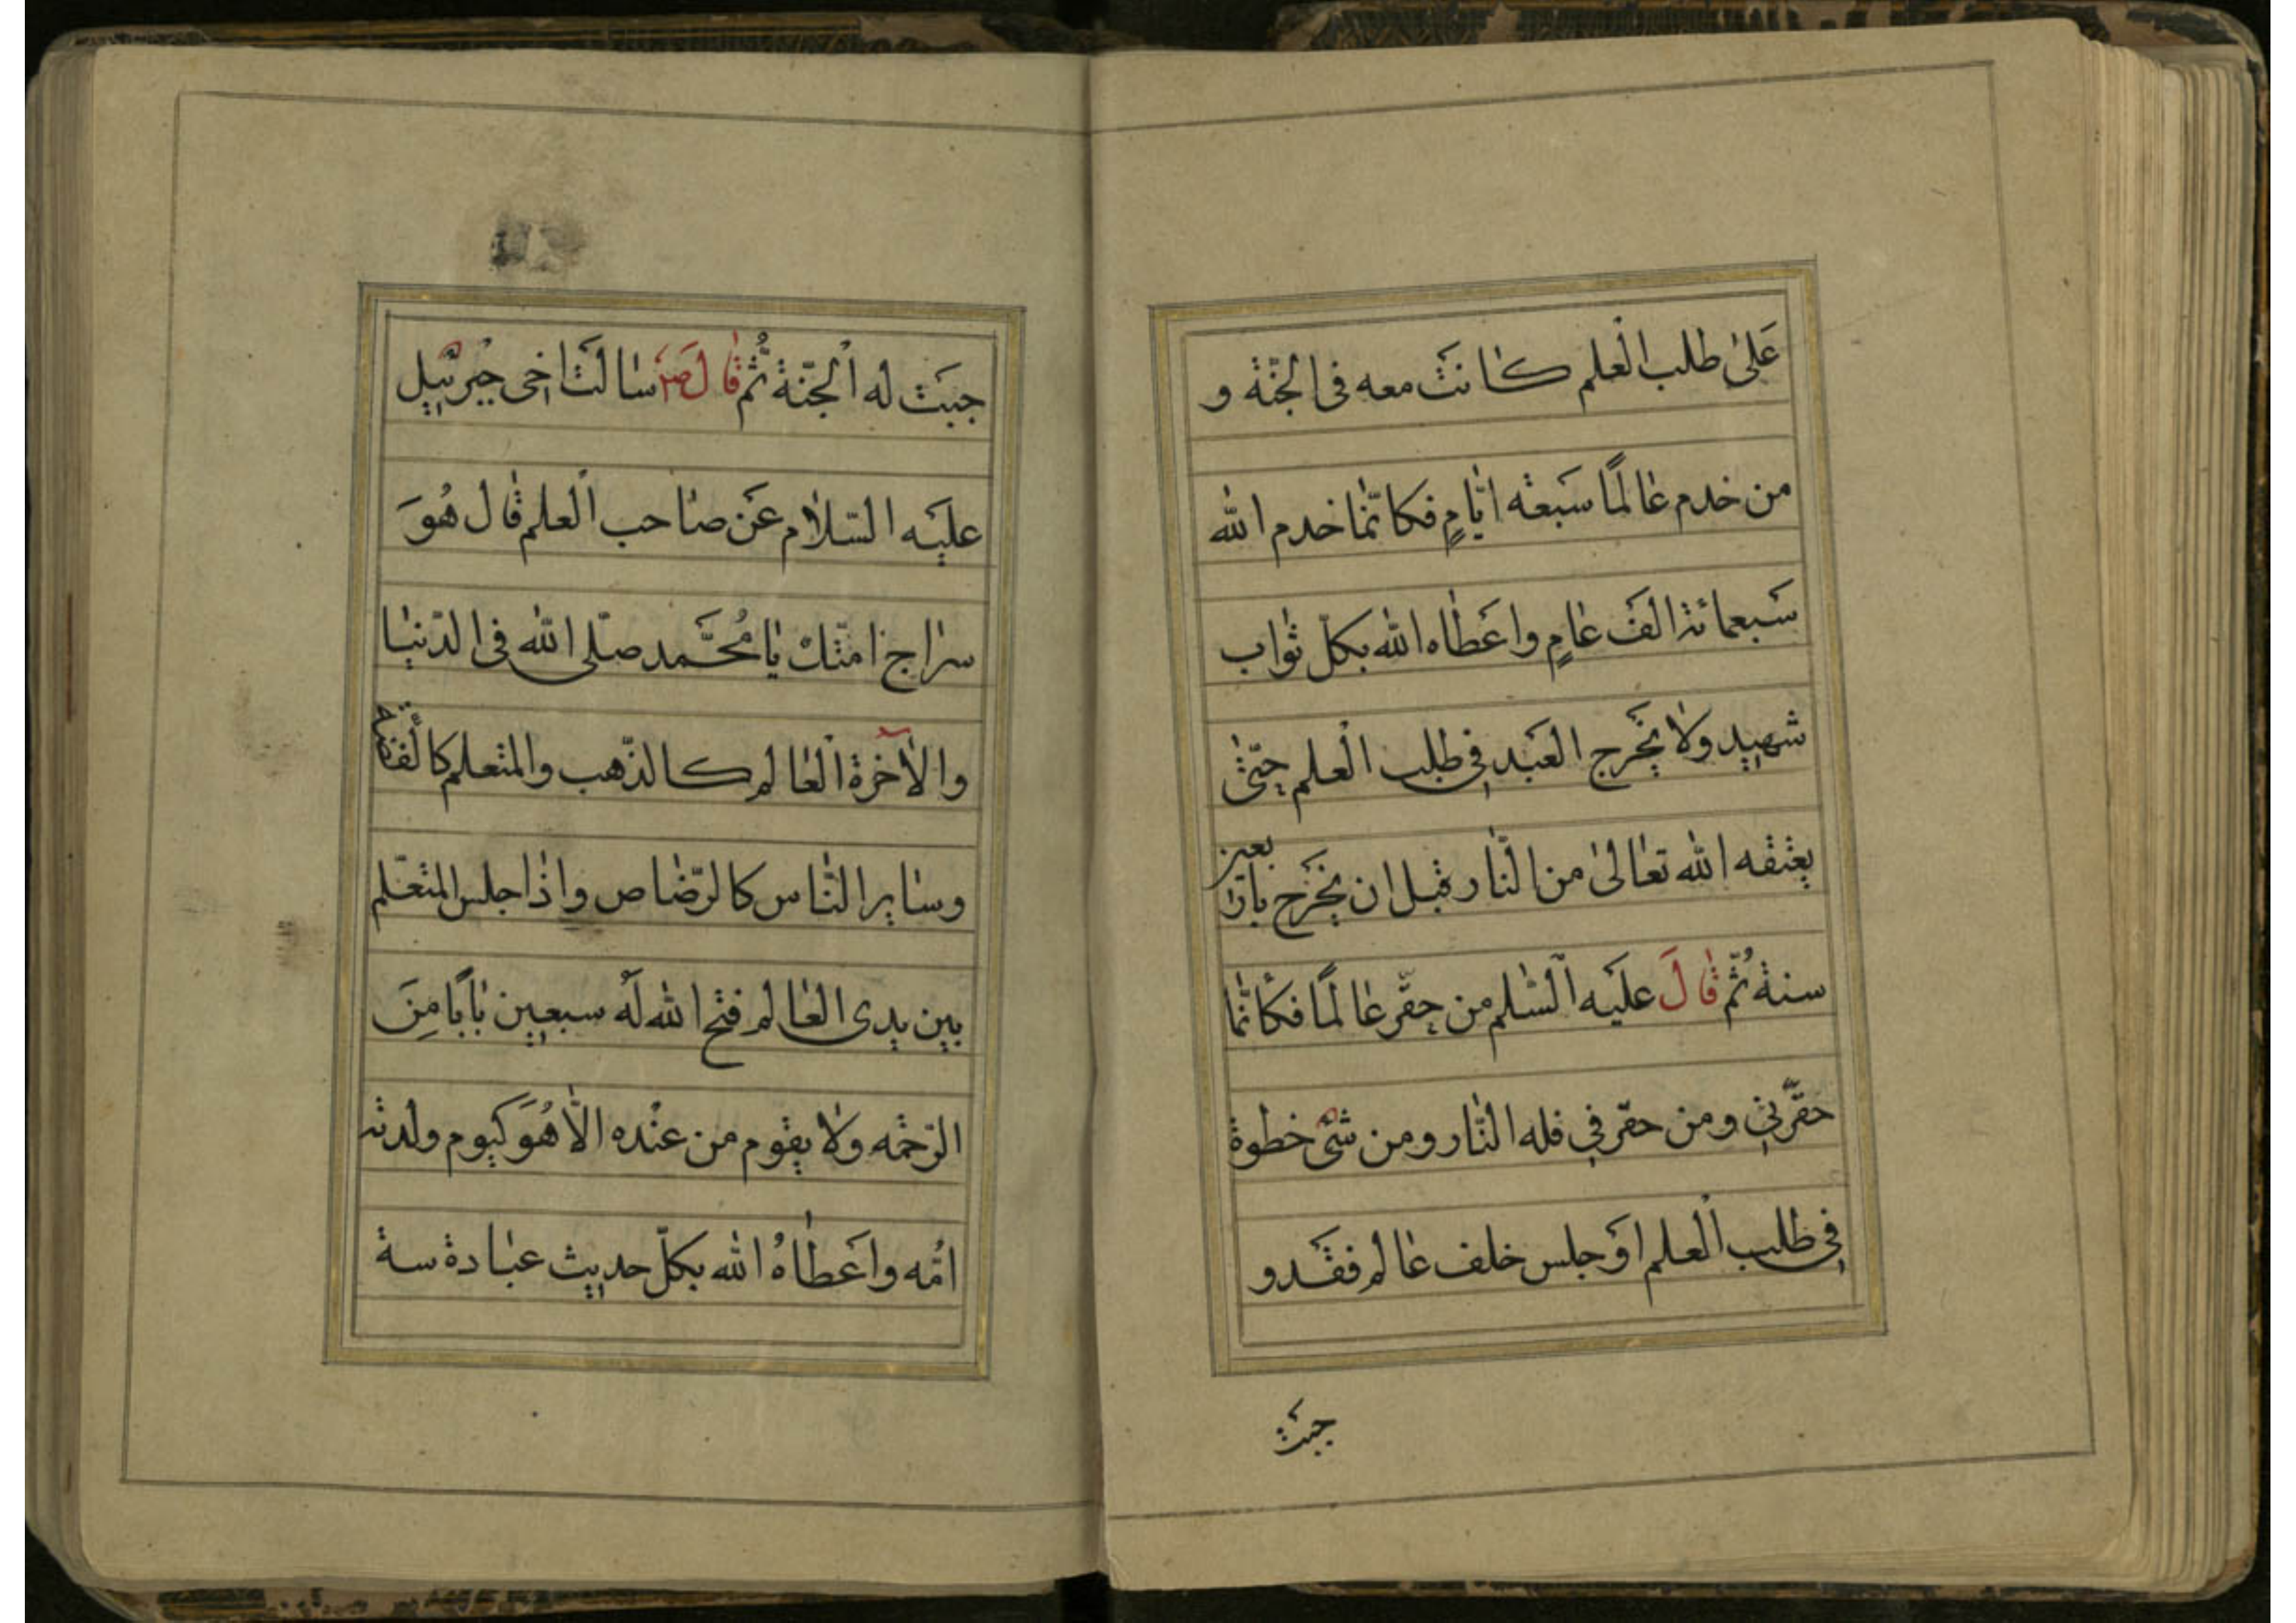 عَلىٰ طلب الْعلم كانَت معه فى الجنّة و
من خدم عالمًا سَبعة ايّامٍ فكانّما خدم الله
سَبعمائة الفَ عامٍ واعَطاه الله بكلّ ثواب
شهيدٍ ولا يخَرج العَبد فى طلب الْعلم حتّى
يعتقه الله تعالىٰ من النّار قبل ان يخَرج باربعين
سنة ثُمّ قالَ عليَه الْسّلم من حقّر عالمًا فكأنّما
حقّرنى ومن حقّرنى فله النّار ومن مشىٰ خطوة
فى طلب الْعلم اوَ جلس خلف عالم فقَد و
جبَت
جبَت له الْجنّة ثُمّ قال صَ سالَت اخى جبْرئيل
عليَه السّلام عَن صاحب الْعلم قال هُوَ
سراج امّتك يا مُحَمّد صلّى الله فى الدّنيا
والآخرة الْعالم كالذّهب والمتعلم كالْفضّة
وساير النّاس كالرّصاص واذا جلس المتعّلم
بين يدى العالم فتح الله لَه سبعين بابًا مِنَ
الرّحمة ولا يقوم من عنْده الّا هُوَ كيوم ولدته
امُّه واعَطاهُ الله بكلّ حديث عبادة سنة